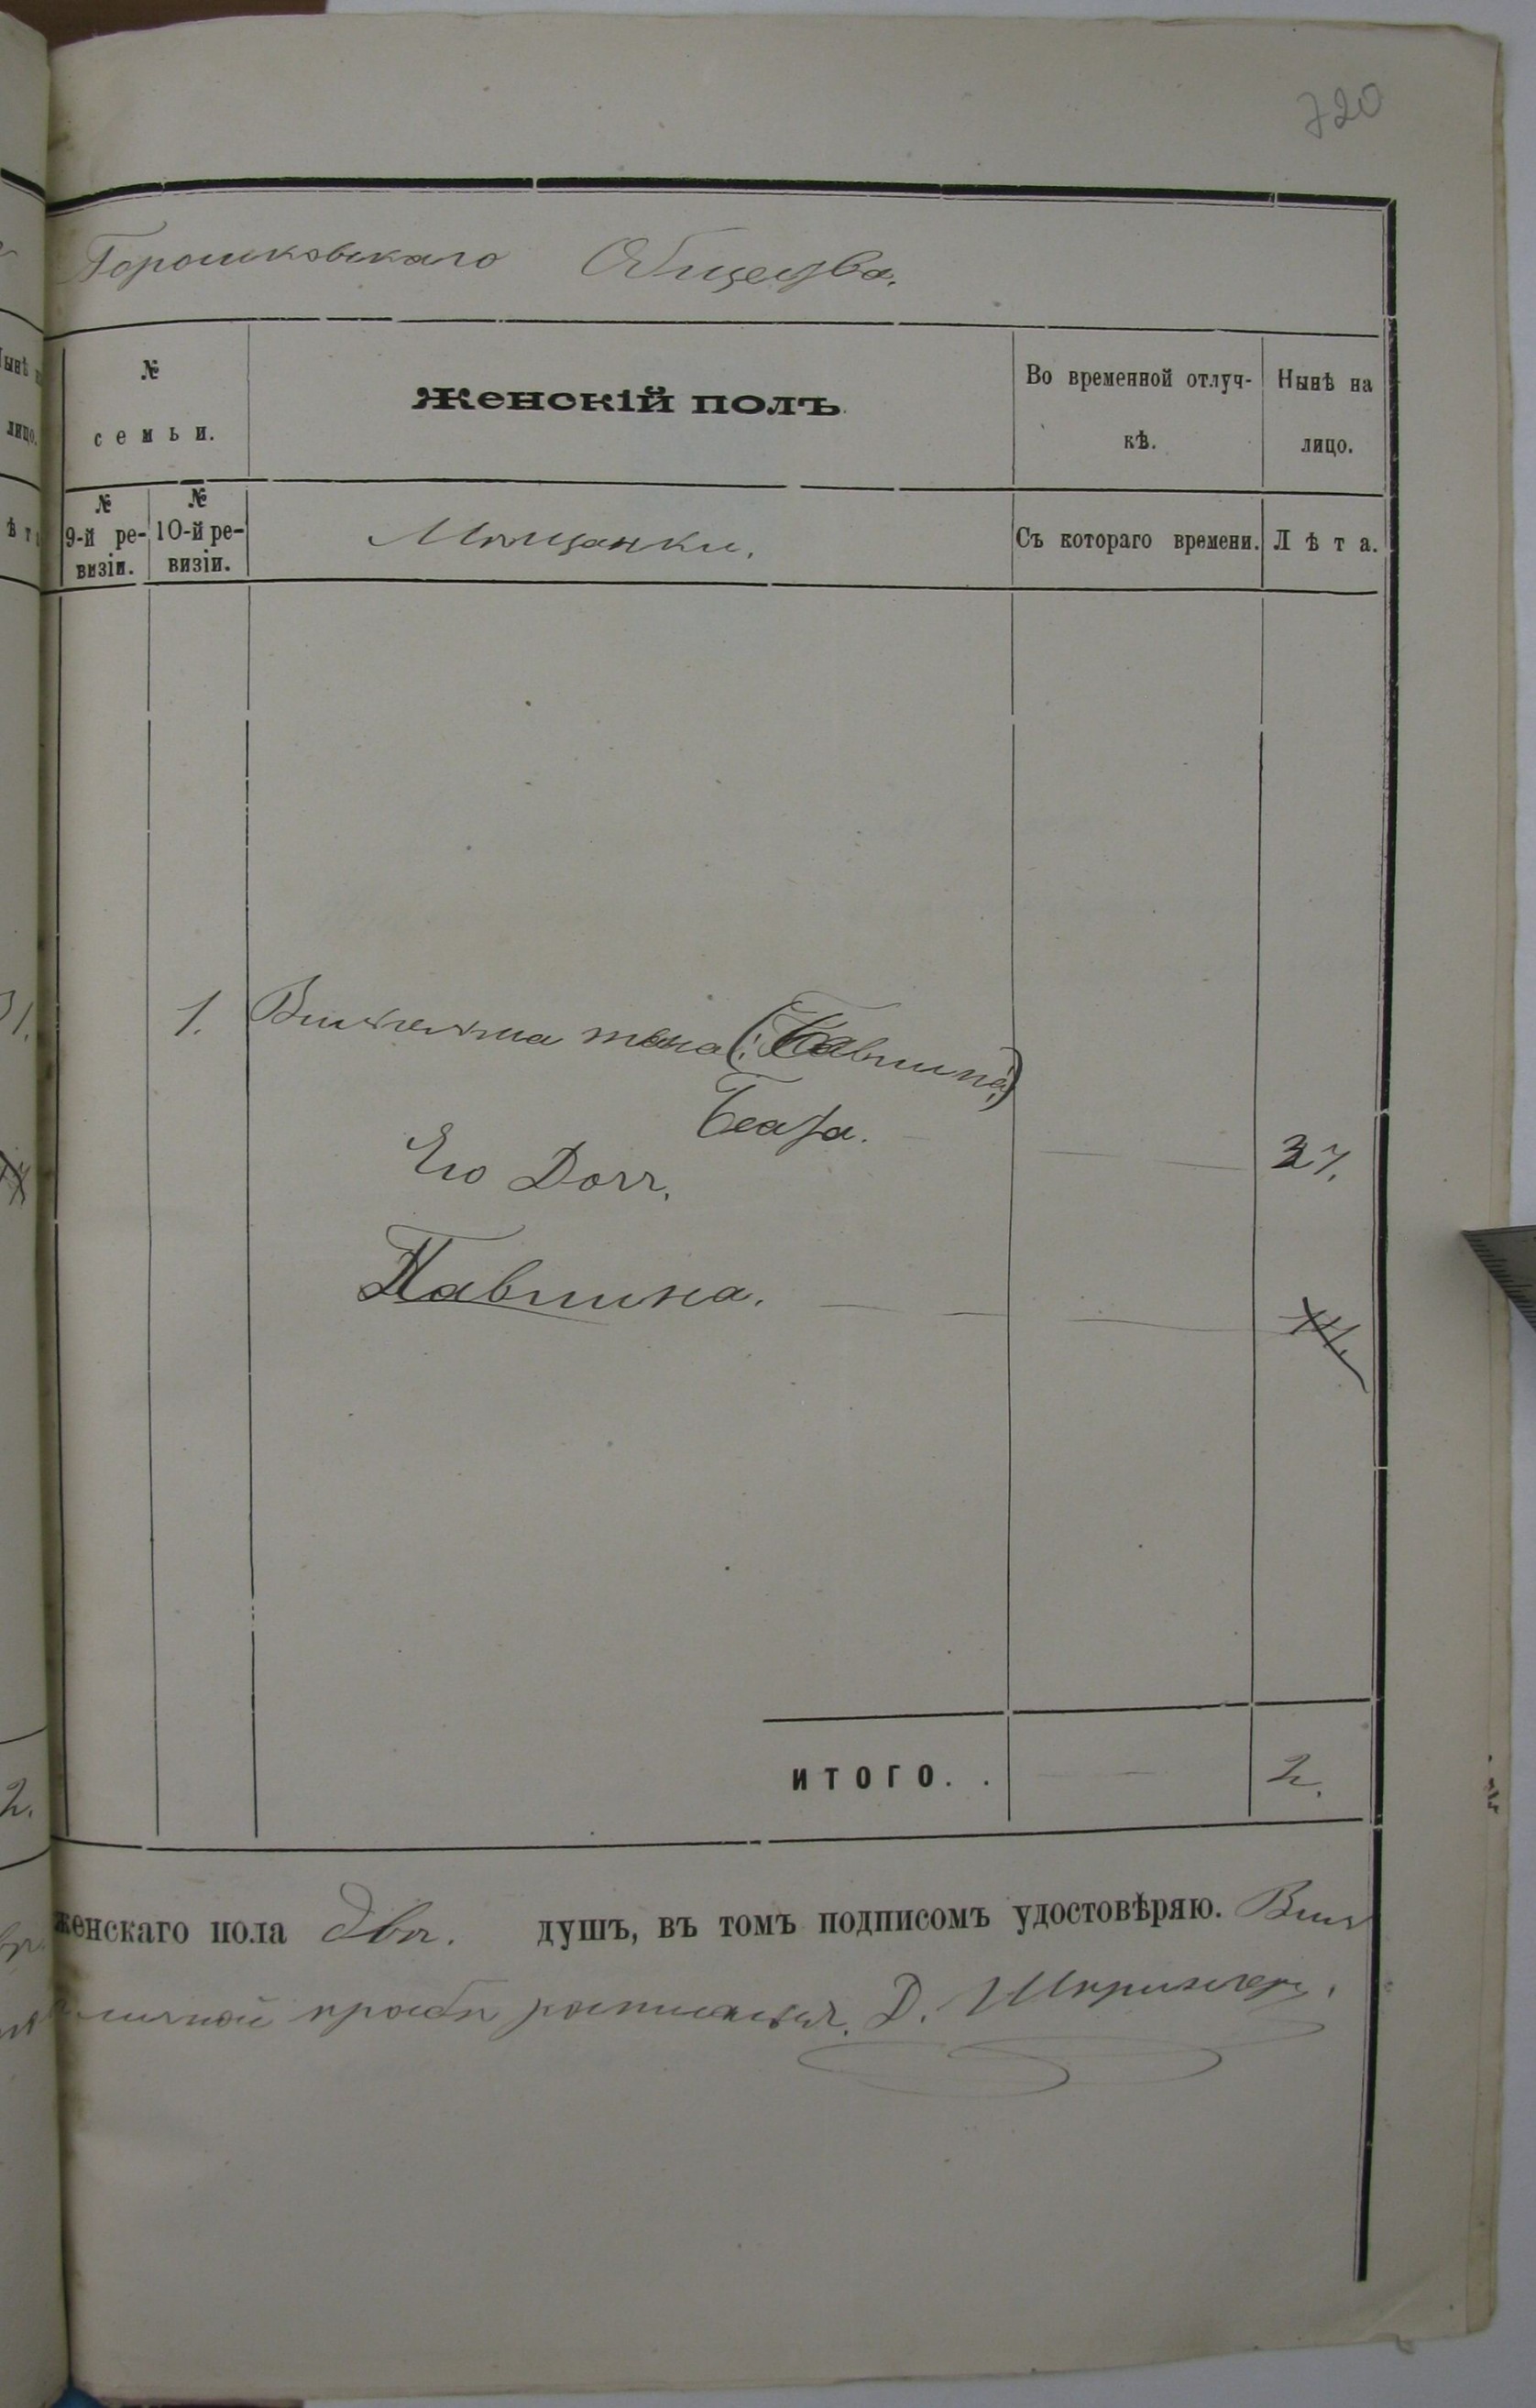 720
Горошковскаго Общества.
№
семьи.
Женскій полъ.
Во временной отлуч-
кѣ.
Нынѣ на
лицо.
№
9-й ре-
визіи.
№
10-й ре-
визіи.
Мѣщанки.
Съ котораго времени.
Лѣта.
1. Вильгельма жена
Беата. 37.
Его Доч.
Павлина. 11.
ИТОГО. . 2.
женскаго пола двѣ. душъ, въ томъ подписомъ удостовѣряю.
личной прозбѣ росписался. Д.